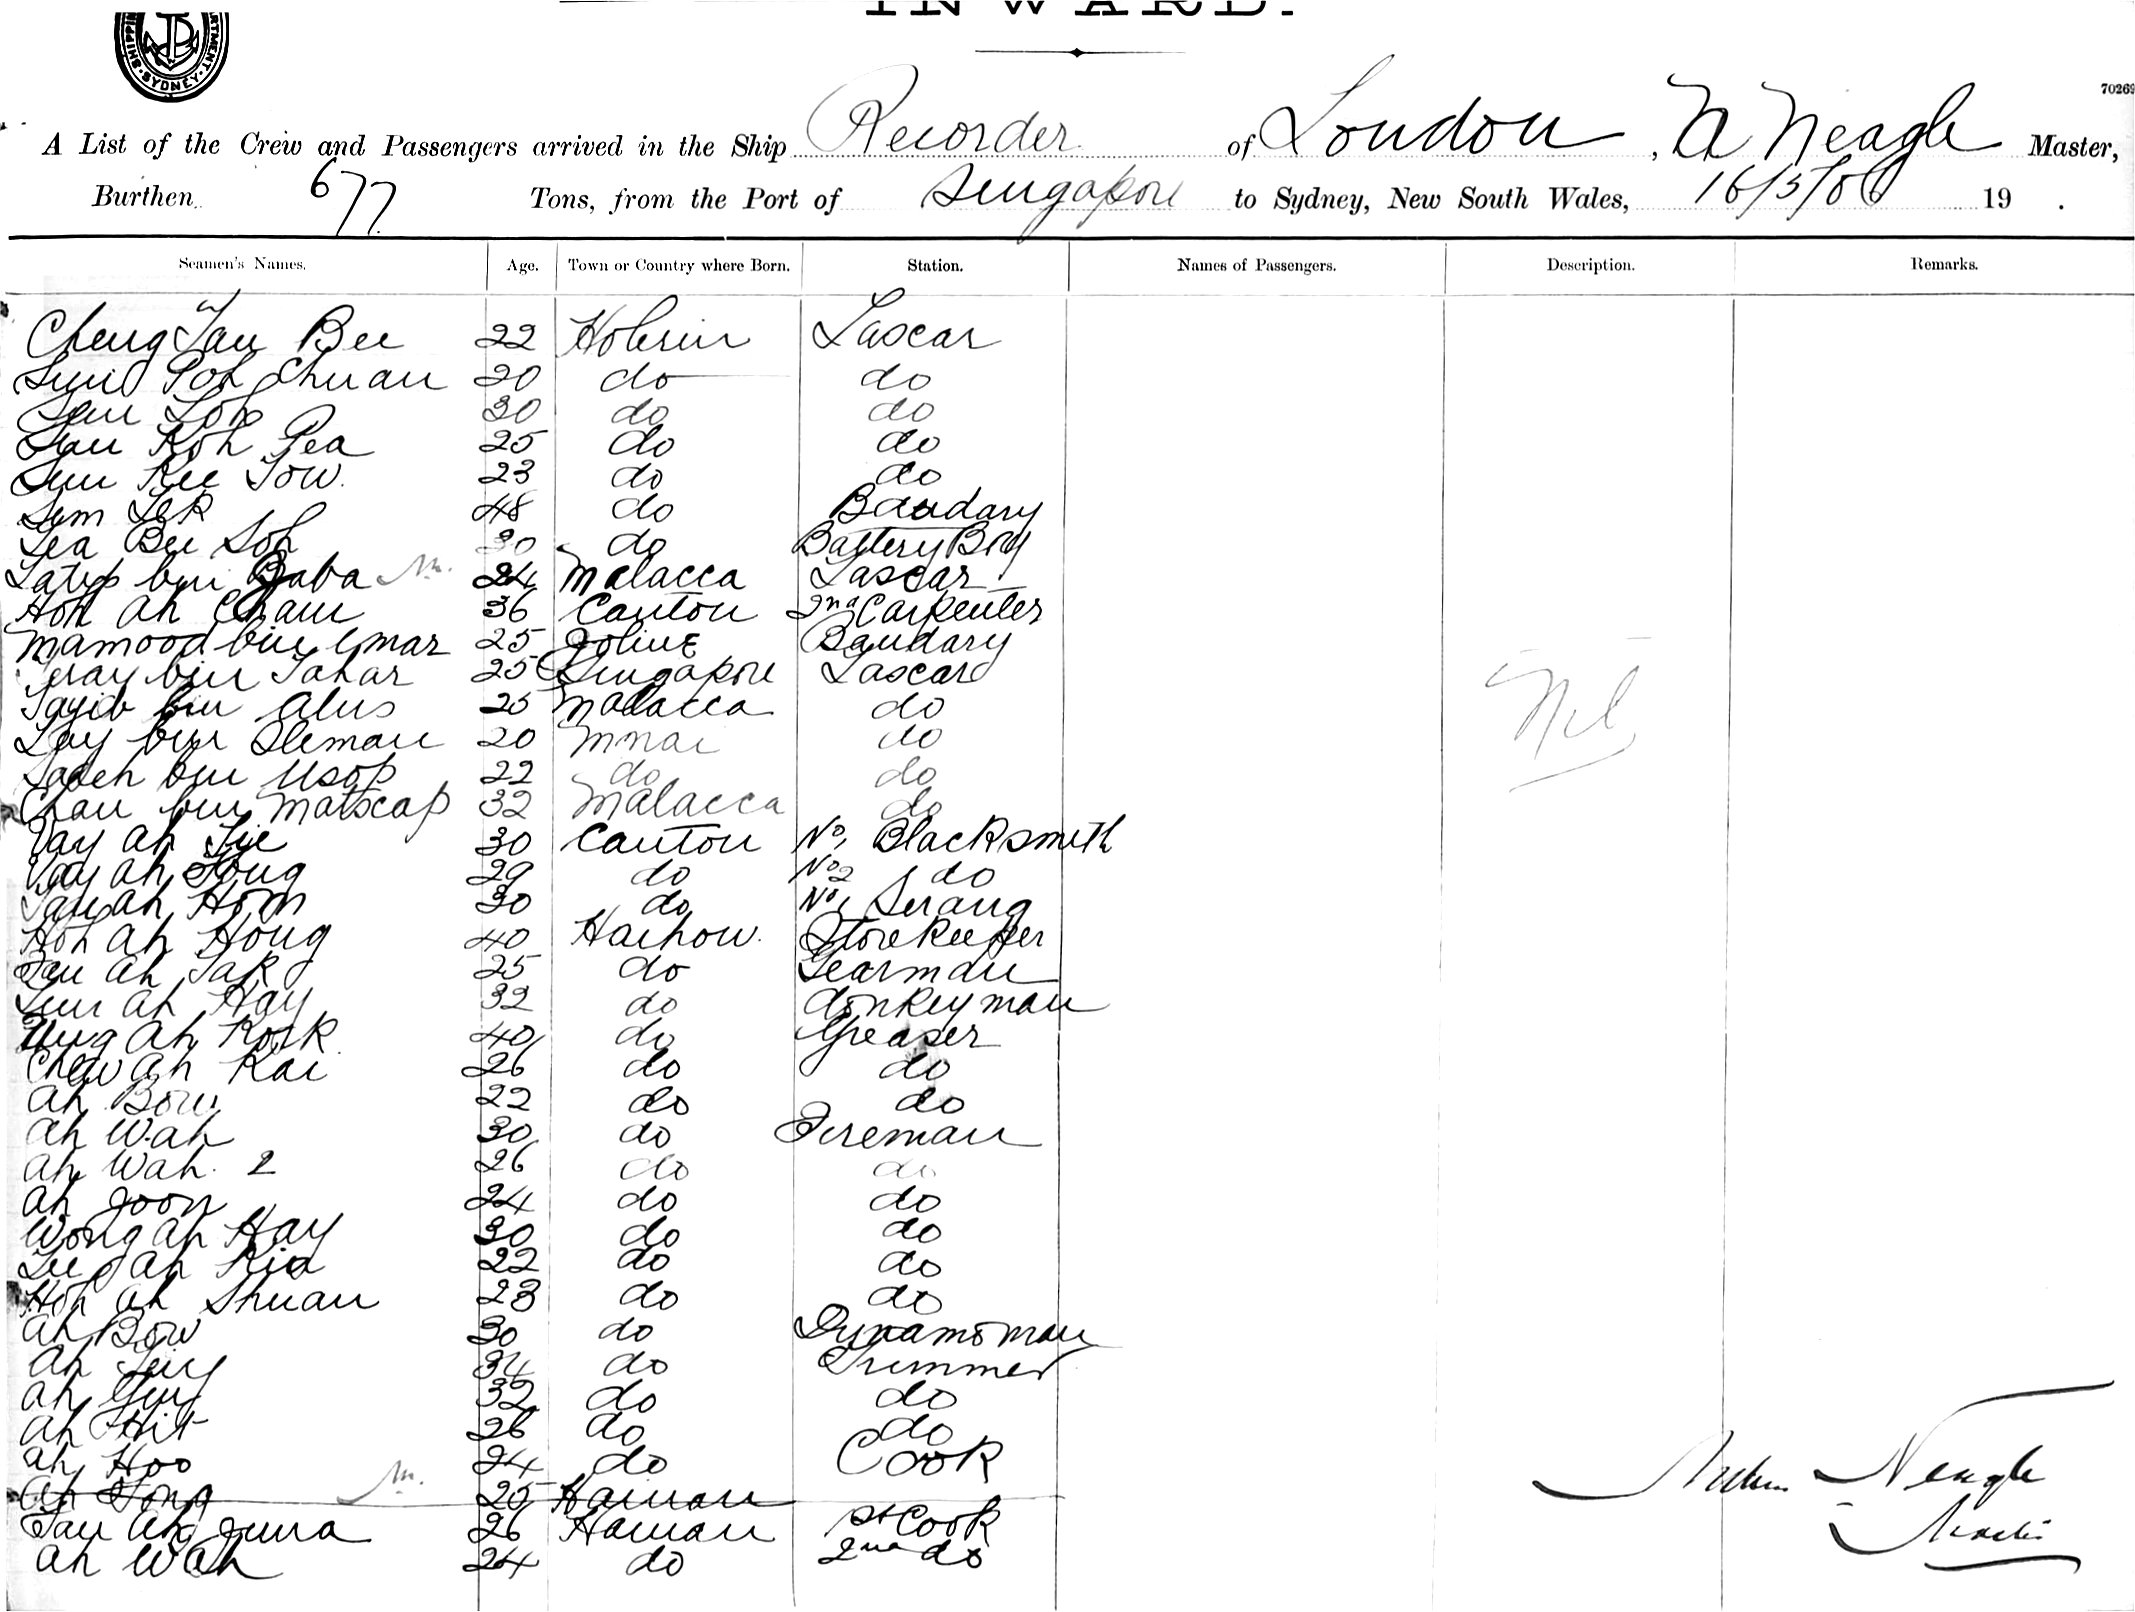 INWARD.
SYDNEY
70269
A List of the Crew and Passengers arrived in the Ship Recorder of London, Neagle Master,
Burthen 677 Tons, from the Port of Singapore to Sydney, New South Wales, 16/5/06 19 .
Seamen's Names. Age. Town or Country where Born. Station. Names of Passengers. Description. Remarks.
Cheng Tau Bee 22 Lascar
Poh Chuan 20 do do
Loh 30 do do
Koh Pea 25 do do
Kee Tow. 23 do do
48 do Bandary
Bee Soh 30 do Battery Boy
bin Baba 24 Malacca Lascar
Hoh Ah Cham 36 Canton 2nd Carpenter
Mamood bin Omar 25 Bandary
bin Tahar 25 Singapore Lascar
Tayib bin Alus 25 Malacca do
bin Sleman 20 do
bin Usop 22 do do
bin Matscap 32 Malacca do
Vay Ah 30 Canton No 1 Blacksmith
Vay Ah 29 do No 2 do
Ah Hom 30 do No 1 Serang
Hoh Ah Hong 40 Haihow. Storekeeper
Ah Tak 25 do Gearman
Ah Hay 32 do donkeyman
Ah 40 do Greaser
Chew Ah Kai 26 do do
Ah Bow 22 do do
Ah Wah 30 do Fireman
Ah Wah. 2 26 do do
Ah Joon 24 do do
Wong Ah Hay 30 do do
Lee Ah Kia 22 do do
Hoh Ah Shuan 23 do do
Ah Bow 30 do Dynamoman
Ah 34 do Trimmer
Ah 32 do do
Ah Hit 26 do do
Ah Hoo 24 do Cook
Ah Fong 25 Hainan
Tan Ah Juna 26 Hainan 1st Cook
Ah Wah 24 do 2nd do
Nil
Neagle
Master